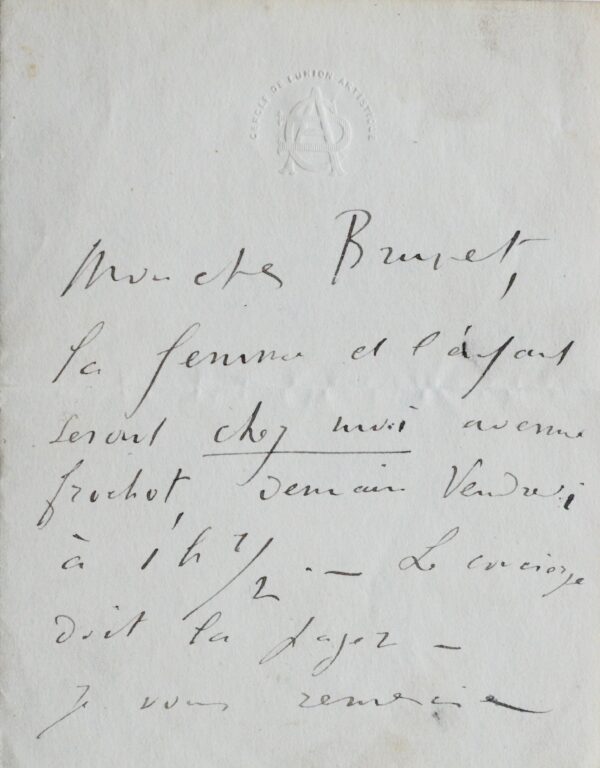 CERCLE DE L'UNION ARTISTIQUE
Mon cher Brunet,
la femme et l'enfant
seront chez moi avenue
frochot, demain Vendredi
à 1h 1/2. — Le concierge
doit la payer —
Je vous remercie